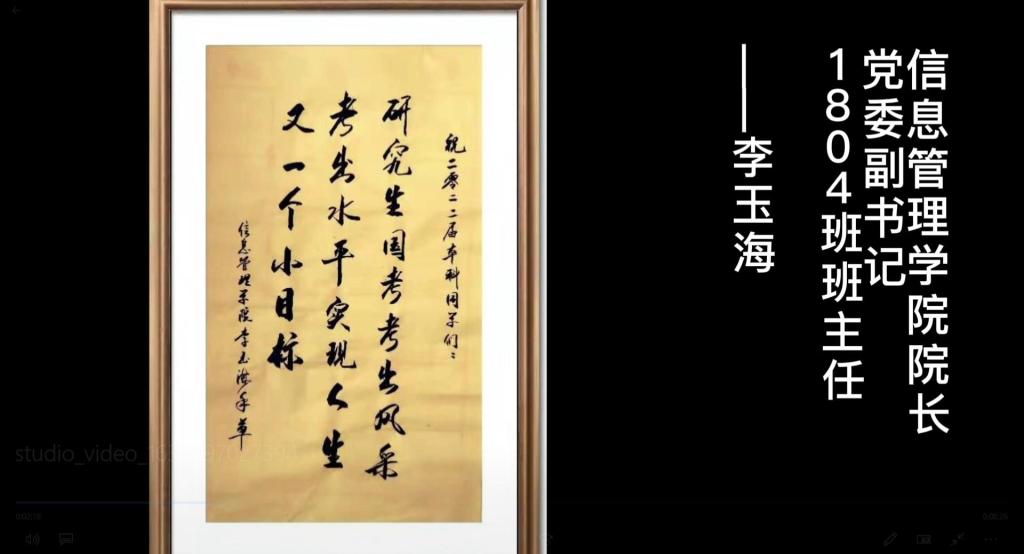 信息管理学院院长
党委副书记
1804班班主任
——李玉海
祝二零二二届本科同学们：
研究生国考考出风采
考出水平实现人生
又一个小目标
信息管理学院李玉海手草
studio_video_16
0:02:18
0:00:26